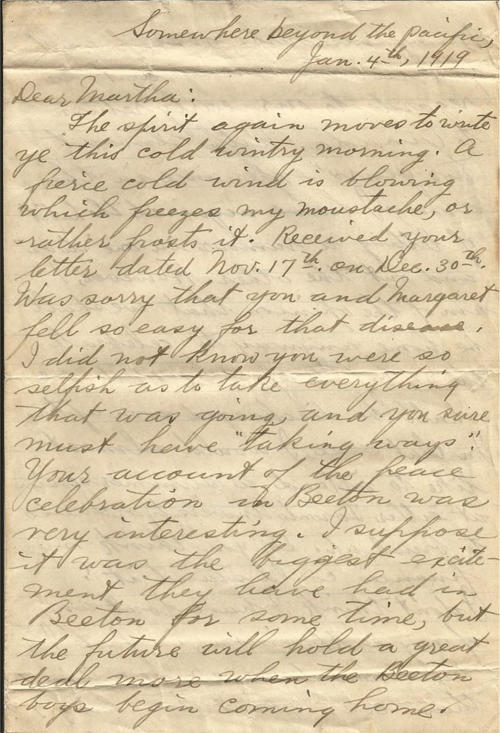 Somewhere beyond the Pacific,
Jan. 4th, 1919
Dear Martha:
The spirit again moves to write
ye this cold wintry morning. A
fierie cold wind is blowing
which freezes my moustache, or
rather frosts it. Received your
letter dated Nov. 17th. on Dec. 30th.
Was sorry that you and Margaret
fell so easy for that disease.
I did not know you were so
selfish as to take everything
that was going and you sure
must have "taking ways".
Your account of the peace
celebration in Beeton was
very interesting. I suppose
it was the biggest excite-
ment they have had in
Beeton for some time, but
the future will hold a great
deal more when the Beeton
boys begin coming home.